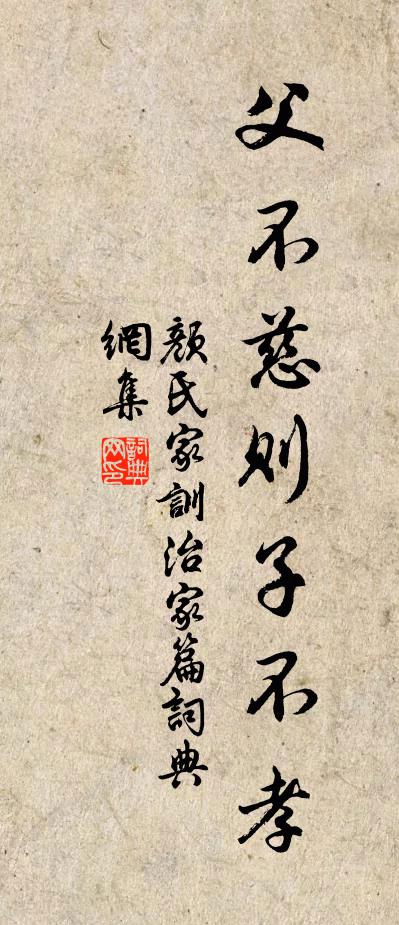 父不慈則子不孝
顏氏家訓治家篇詞典
網集
詞典
网印